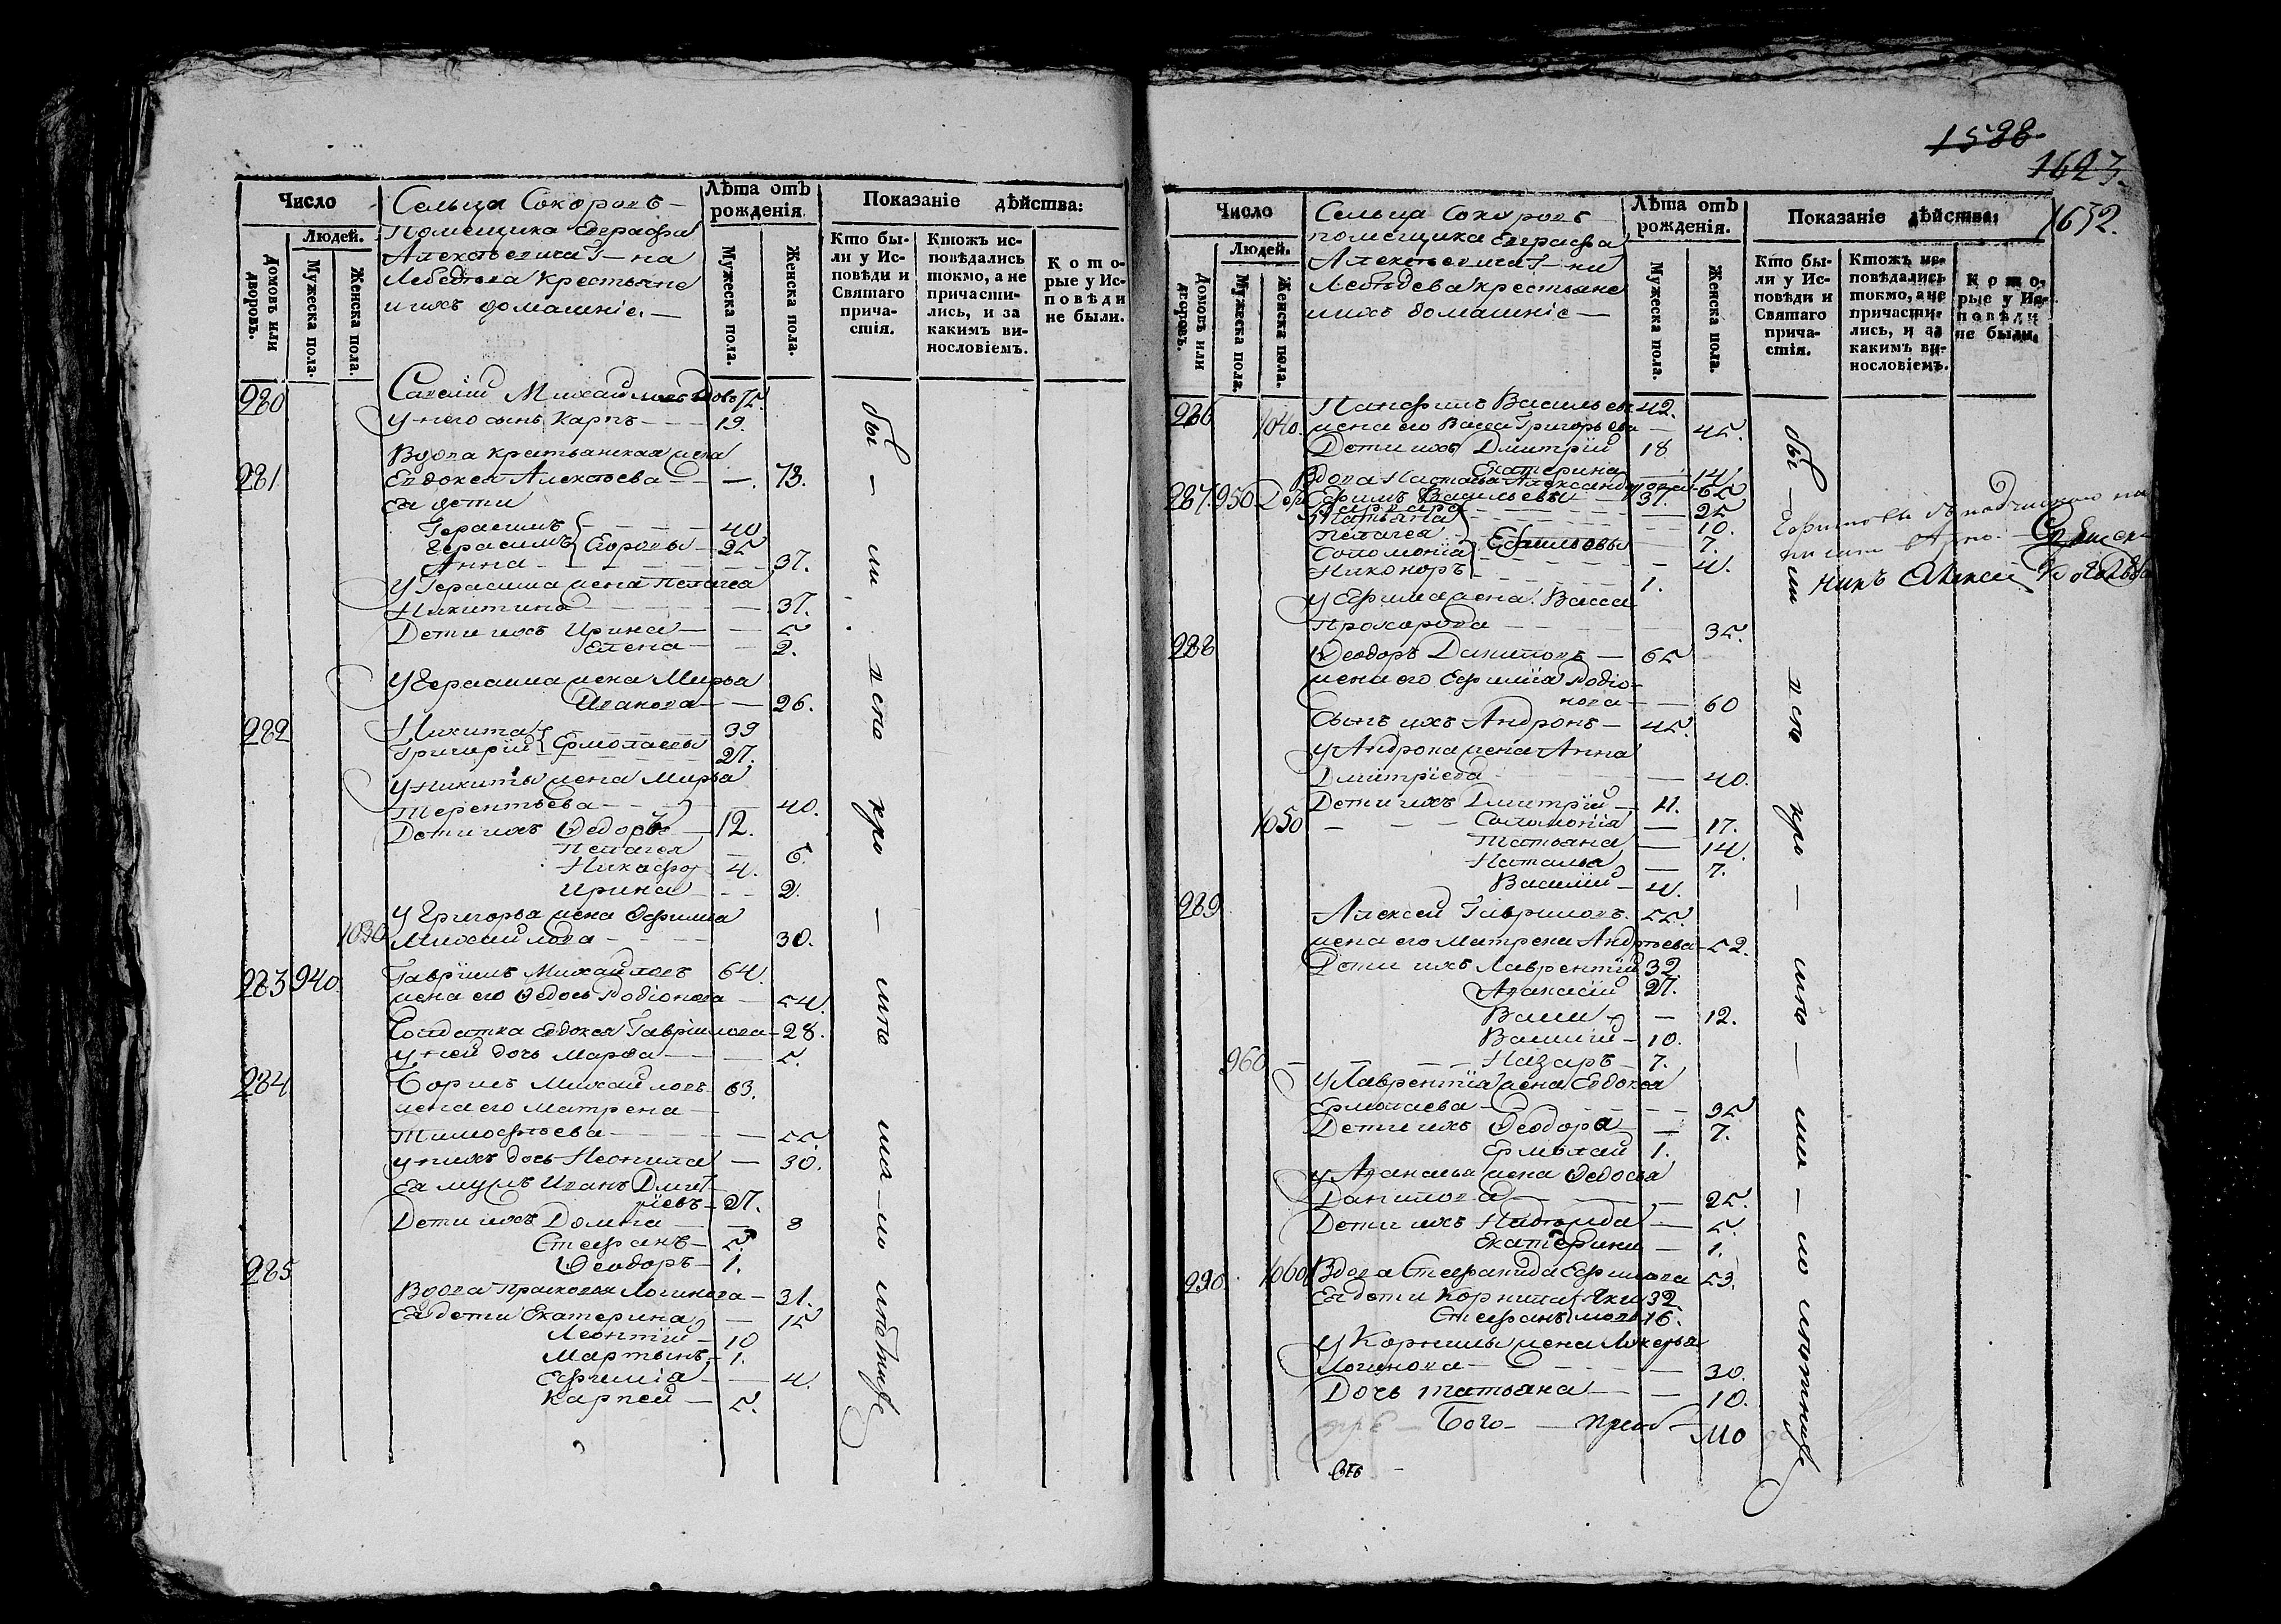 Число
Людей.
Домовъ или дворовъ.
Мужеска пола.
Женска пола.
Сельца Сокоровъ –
Помещика Еврафа
Алексѣевича Г – на
Лебедева Крестьяне
и ихъ домашніе. –
Лѣта отъ рожденія.
Мужеска пола.
Женска пола.
Показаніе дѣйства:
Кто бы-
ли у Ис-
повѣди и
Святаго
прича-
стія.
Ктожъ ис-
повѣдались
токмо, а не
причасти-
лись, и за
какимъ ви-
нословіемъ.
Кото-
рые у Ис-
повѣди
не были.
280 Савелій Михайловъ вдовъ 75.
У него сынъ Карпъ – – 19.
Вдова крестьянская жена
281 Евдокея Алексѣева – – 73.
Ея дети
Герасимъ – – – 40
Герасимъ Егоровы – 25
Анна – – – 37.
У Герасима жена Пелагея
Никитина – – – 37.
Дети ихъ Ирина – – 5
Елена – – 2.
У Герасима жена Марья
Иванова – – 26.
282 Никита – – – 39
Григорій Ермолаевы 27.
У Никиты жена Марья
Терентьева – – – 40.
Дети ихъ Ѳедоръ – 12.
Пелагея – 6.
Никифоръ 4.
Ирина – – 2.
У Григорья жена Ефимия
1030 Михайлова – – – 30.
283 940. Гавріилъ Михайловъ 64.
жена его Ѳедосья Родіонова – 54.
Солдатка Евдокея Гавріилова – 28.
У ней дочь Марфа – – 5.
284 Борисъ Михайловъ 63.
жена его Матрена –
Тимофѣева – – – 55.
У нихъ дочь Неонила – 30.
Ея мужъ Иванъ Дмит-
ріевъ – 27.
Дети ихъ Домна – – 8
Стефанъ – 5.
Ѳеодоръ – 1.
285 Вдова Прасковья Логинова – 31.
Ея дети Екатерина – 15
Леонтій – 10
Мартынъ – 1.
Ефимія – – 4.
Карпей – 5.
бы – ли у испо
1588
1623.
1632.
Число
Людей.
Домовъ или дворовъ.
Мужеска пола.
Женска пола.
Сельца Сокоровъ
помещика Еврафа
Алексѣевича Г – на
Лебѣдева крестьяне
и ихъ домашніе –
Лѣта отъ рожденія.
Мужеска пола.
Женска пола.
Показаніе дѣйства:
Кто бы-
ли у Ис-
повѣди и
Святаго
прича-
стія.
Ктожъ ис-
повѣдались
токмо, а не
причасти-
лись, и за
какимъ ви-
нословіемъ.
Кото-
рые у Ис-
повѣди
не были.
286 1040. Панфилъ Васильевъ 42.
жена его Васса Григорьева – 45.
Дети ихъ Дмитрій 18
Екатерина – 14
Вдова Настасья Александрова 65
287. 950 Ефимъ Васильевъ – 37.
25
Татьяна – – – 10.
Пелагея – – 7.
Соломонія Ефимовы – 4.
Никоноръ – – 1.
У Ефима жена Васса
Прохорова – – – 35.
288 Ѳеодоръ Даниловъ – 65
жена его Ефимія Родіо-
нова – – 60
Сынъ ихъ Андронъ – 45.
У Андрона жена Анна
Дмитріева – – 40.
Дети ихъ Дмитрій – 11.
1050 – – – Соломонія – 17.
Татьяна – 14.
Наталья – 7.
Василій – 4.
289 Алексей Гавриловъ 55.
жена его Матрена Андрѣева – 52.
Дети ихъ Лаврентій 32
Афанасій 27.
– 12.
Василій – 10.
960 – – – Назаръ – 7.
У Лаврентія жена Евдокея
Ермолаева – – – 35
Дети ихъ Ѳеодора – 7.
Ермолай 1.
У Афанасья жена Ѳедосья
Данилова – – – 25.
Дети ихъ Надежда – 5.
Екатерина – 1.
290. 1060 Вдова Стефанида Ефимова 53.
Ея дети Корнила Яки 32
Стефанъ мовы 16.
У Корнилы жена Лукерья
Логинова – – – 30.
Дочь Татьяна – – 10.
Бого –
бы – ли у испо
никъ Алексей